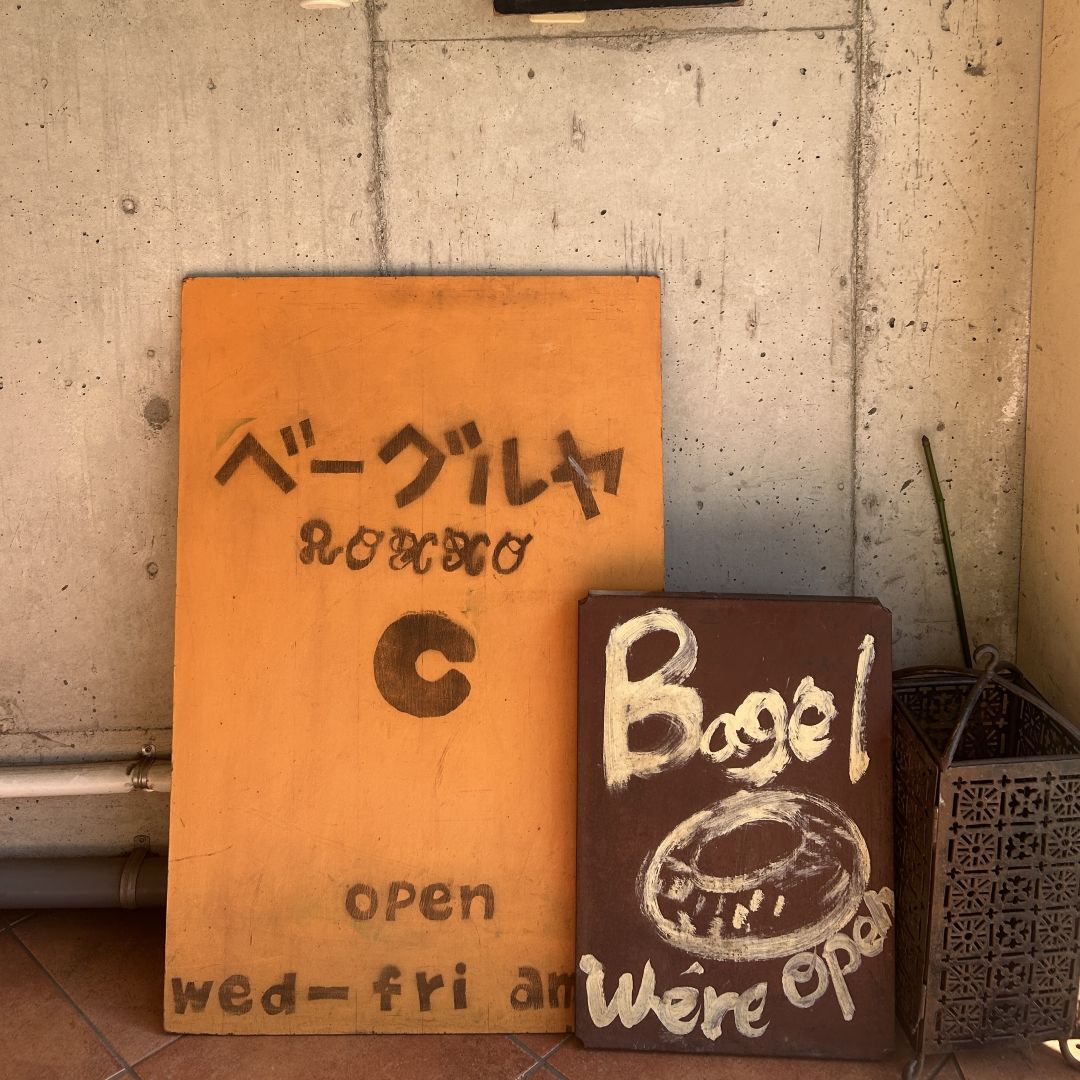 ベーグルヤ
ROKKO
C
open
wed-fri am
Bagel
We're open